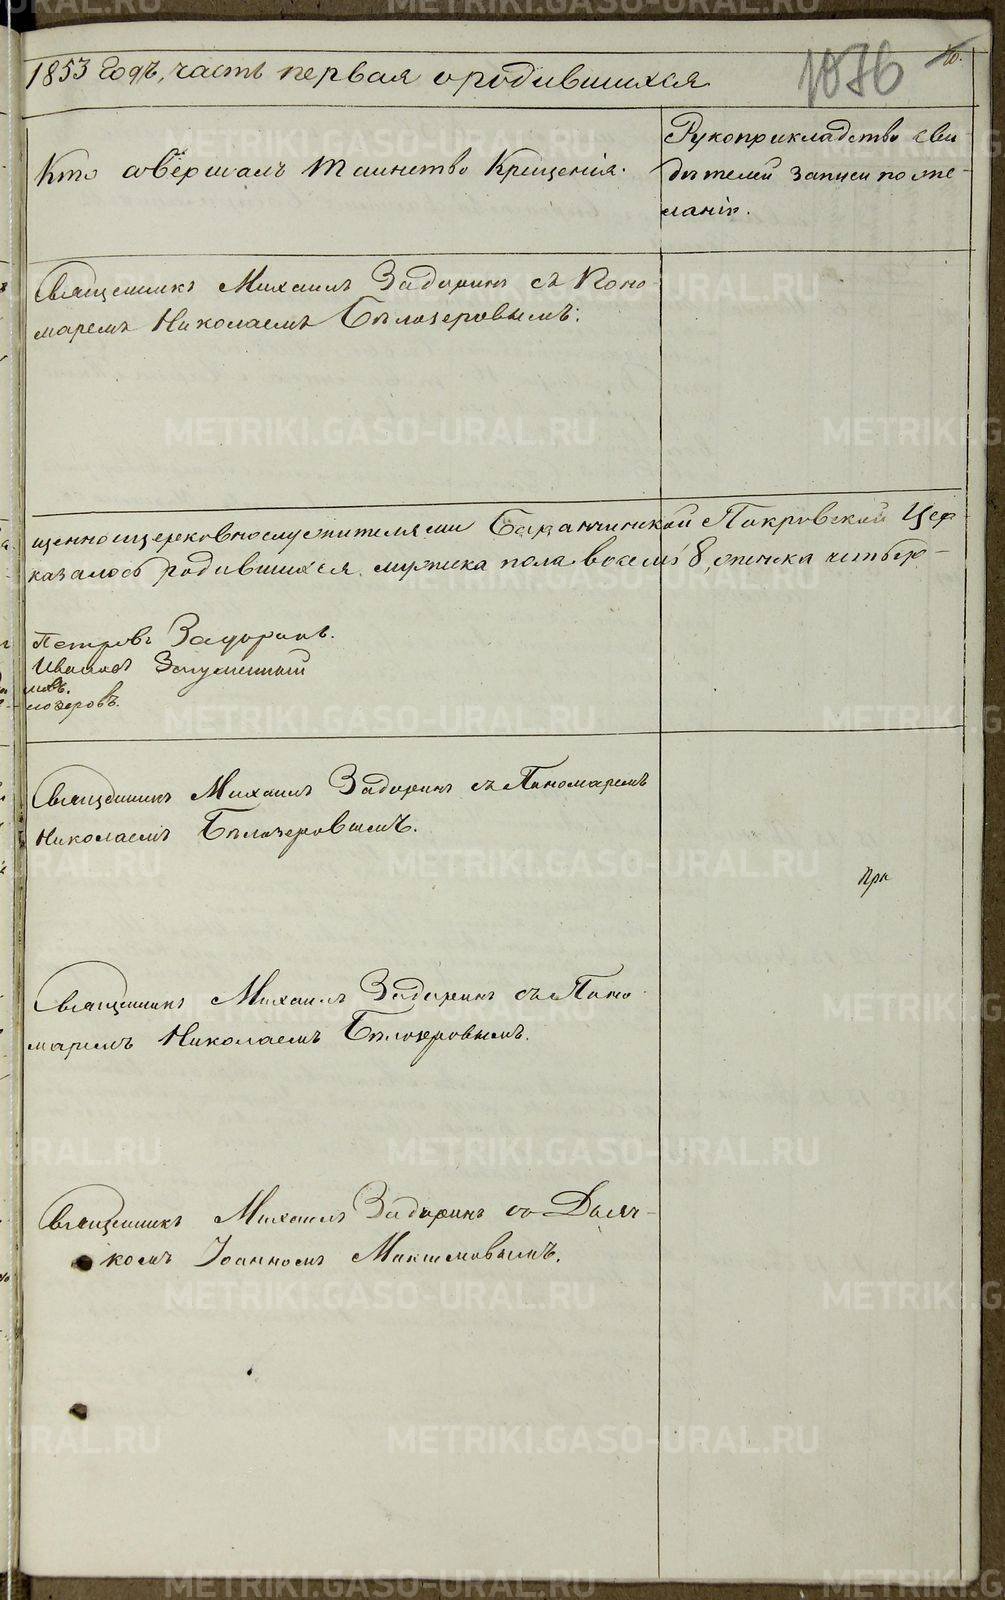 1853 Годъ, часть первая о родившихся
1076
10.
Кто совершалъ таинство Крещенія.
Рукоприкладство сви-
дѣтелей записи по же-
ланію.
Священникъ Михаилъ Задоринъ съ Поно-
маремъ Николаемъ Бѣлозеровымъ.
щенноцерковнослужителями Баранчинской Покровской Цер-
казалось родившихся мужска пола восемь 8, женска четыр-
Петровъ Задоринъ.
Ивановъ
мовъ.
лозеровъ.
Священникъ Михаилъ Задоринъ съ Пономаремъ
Николаемъ Бѣлозеровымъ.
При
Священникъ Михаилъ Задоринъ съ Поно
маремъ Николаемъ Бѣлозеровымъ.
Священникъ Михаилъ Задоринъ со Дьяч-
комъ Іоанномъ Максимовымъ.
METRIKI.GASO-URAL.RU